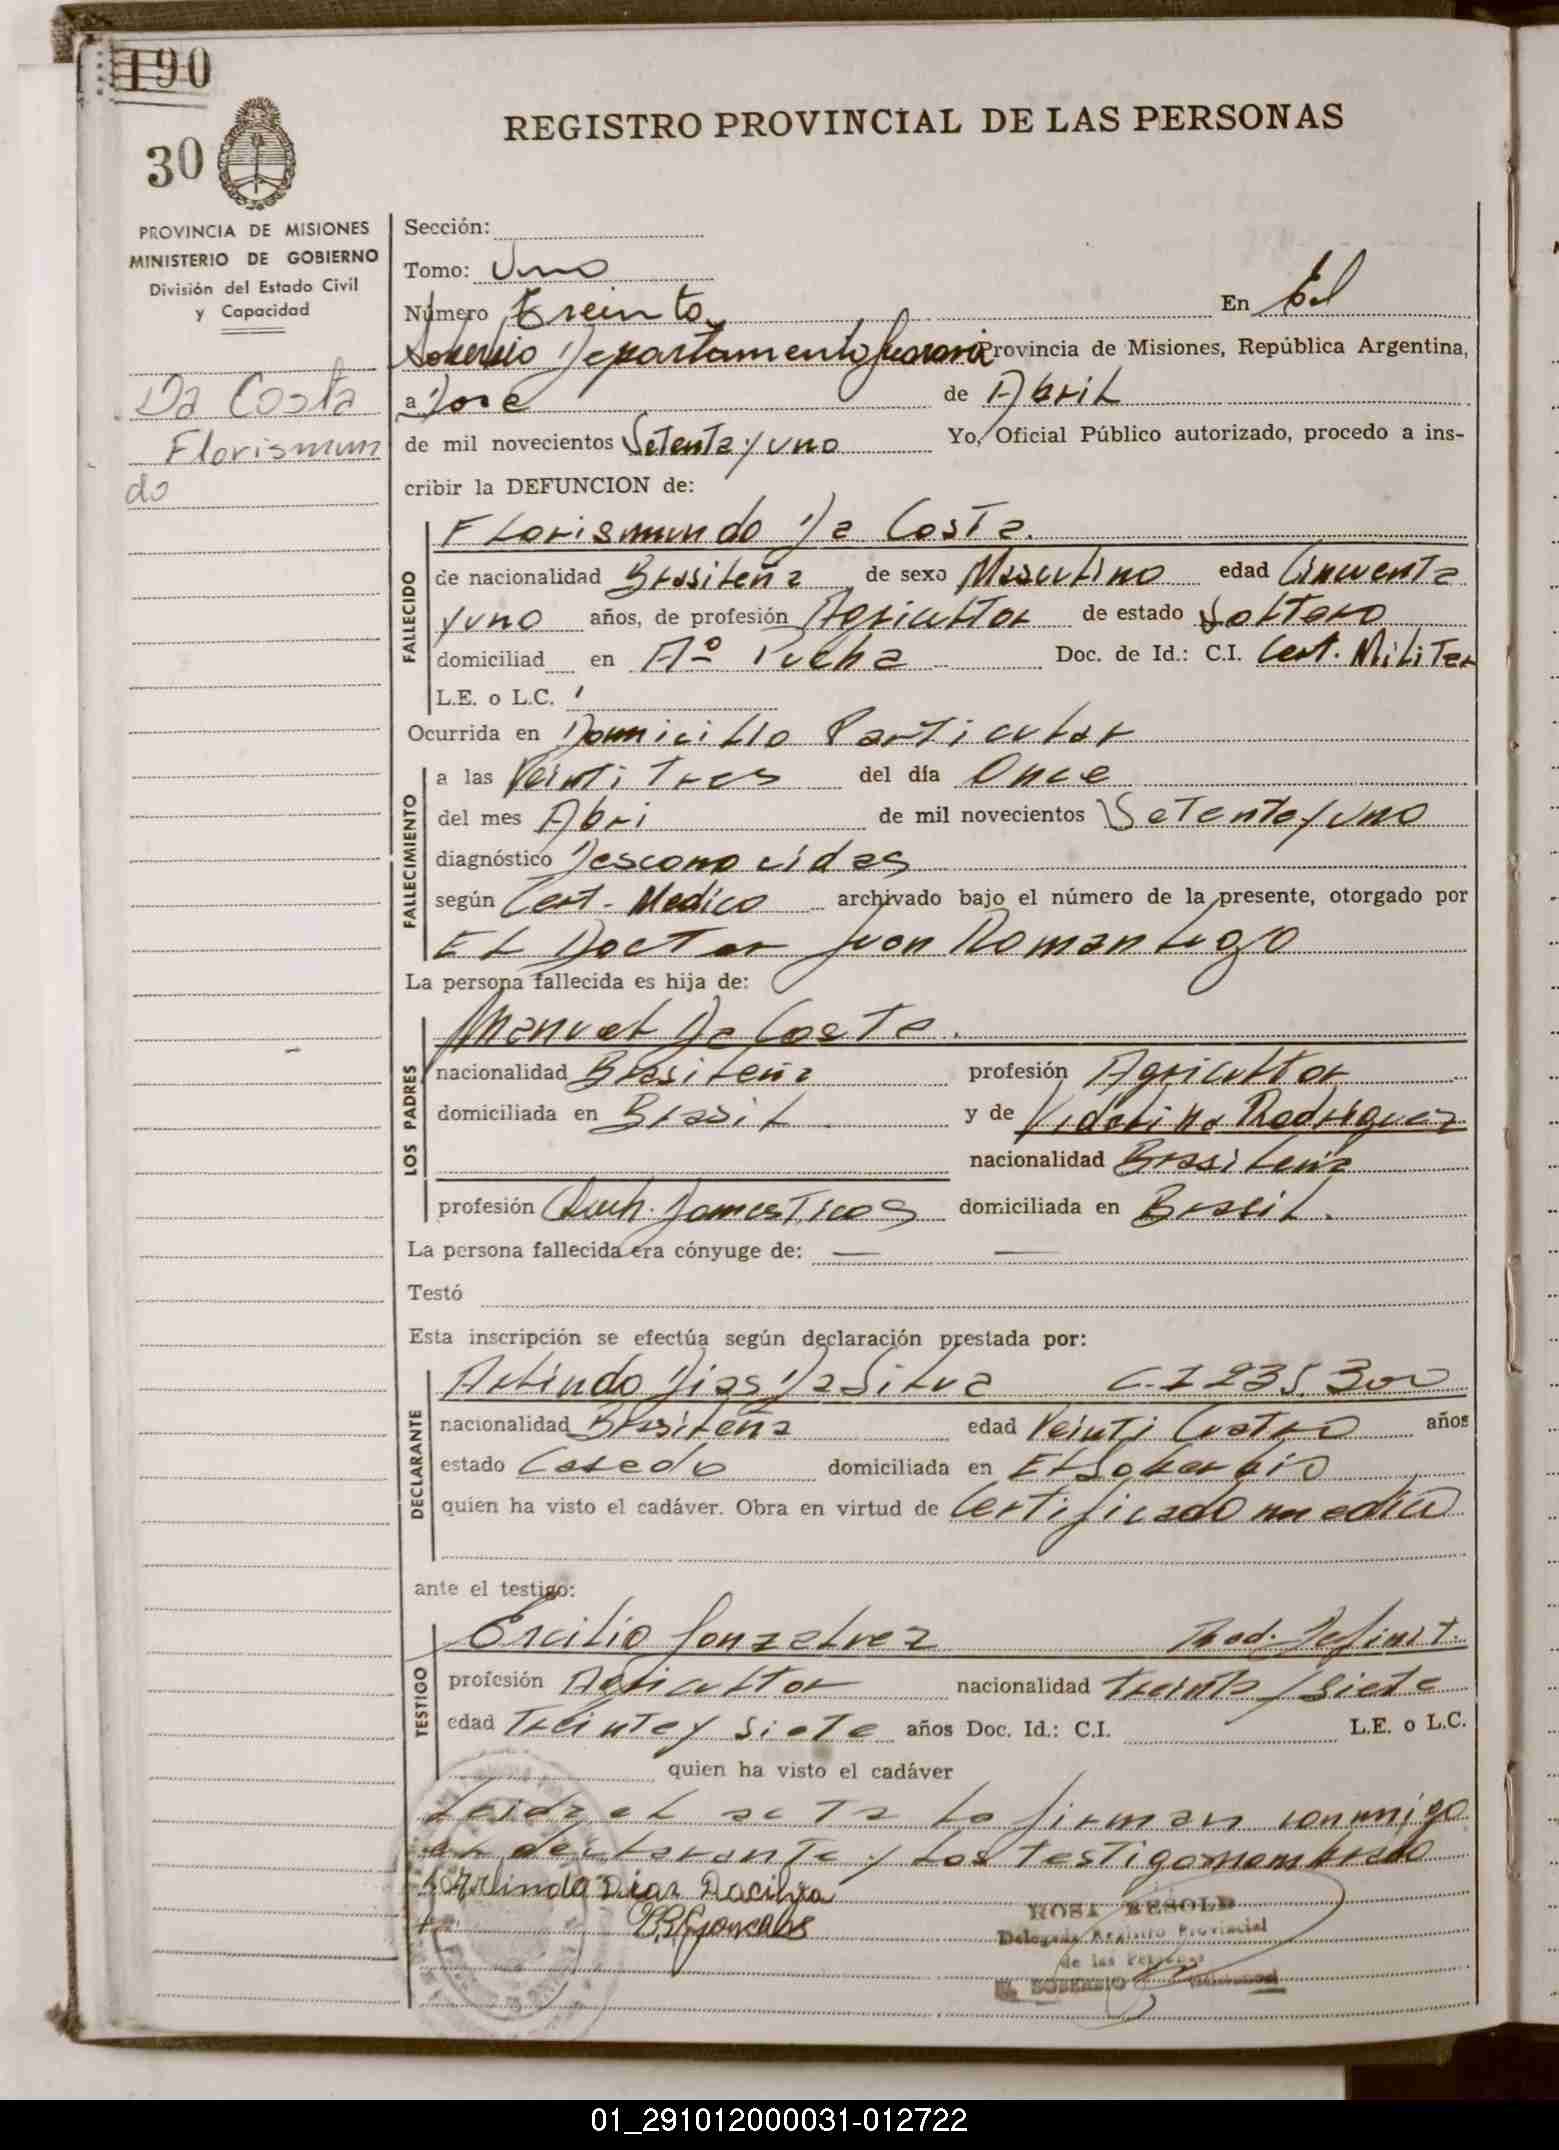 190
30
REGISTRO PROVINCIAL DE LAS PERSONAS
PROVINCIA DE MISIONES
MINISTERIO DE GOBIERNO
División del Estado Civil
y Capacidad
Da Costa
Florismun
do
Sección:
Tomo: Uno
Número Treinta En El
Soberbio Departamento Guarani Provincia de Misiones, República Argentina,
a Doce de Abril
de mil novecientos Setenta y uno Yo, Oficial Público autorizado, procedo a ins-
cribir la DEFUNCION de:
FALLECIDO
Florismundo Da Costa.
de nacionalidad Brasileña de sexo Masculino edad Cincuenta
y uno años, de profesión Agricultor de estado Soltero
domiciliad en Aº Doc. de Id.: C.I. Cert. Militar
L.E. o L.C.
Ocurrida en Domicilio Particular
FALLECIMIENTO
a las Veinti Tres del día Once
del mes Abri de mil novecientos Setenta y uno
diagnóstico Desconocidas
según Cert. Medico archivado bajo el número de la presente, otorgado por
El Doctor Juan Roman Lugo
La persona fallecida es hija de:
LOS PADRES
Manuel Da Costa.
nacionalidad Brasileña profesión Agricultor
domiciliada en Brasil y de Rodriguez
nacionalidad Brasileña
profesión Domesticos domiciliada en Brasil.
La persona fallecida era cónyuge de: — —
Testó
Esta inscripción se efectúa según declaración prestada por:
DECLARANTE
Arlindo Dias Da Silva C.I 235.300
nacionalidad Brasileña edad Veinti Cuatro años
estado Casado domiciliada en El Soberbio
quien ha visto el cadáver. Obra en virtud de Certificado medico
ante el testigo:
TESTIGO
Ercilio Gonzalvez Rad. Definit.
profesión Agricultor nacionalidad treinta y siete
edad Treinta y siete años Doc. Id.: C.I. L.E. o L.C.
quien ha visto el cadáver
Leida el acta la firman conmigo
el declarante y los testigo nombrado
Arlindo Dias Dacilva
Goncalves
ROSA BESOLD
Delegada Registro Provincial
de las Personas
EL SOBERBIO
01_291012000031-012722